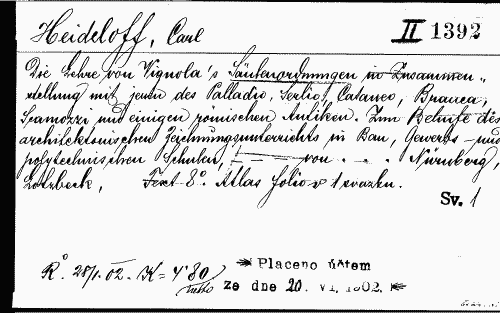 Heideloff, Carl II 1392
Die Lehre von Vignola's Säulenordnungen in Zusammen-
stellung mit jenen des Palladio, Serlio, Cataneo, Branca,
Scamozzi und einigen römischen Antiken. Zum Behufe des
architektonischen Zeichnungsunterrichts in Bau, Gewerbs- und
polytechnischen Schulen, von . . . Nürnberg,
Lotzbeck, Text 8°. Atlas folio v 1 svazku.
Sv. 1
R° 28/1. 02. K= 4'80 Placeno účtem
netto ze dne 20. VI. 1902.